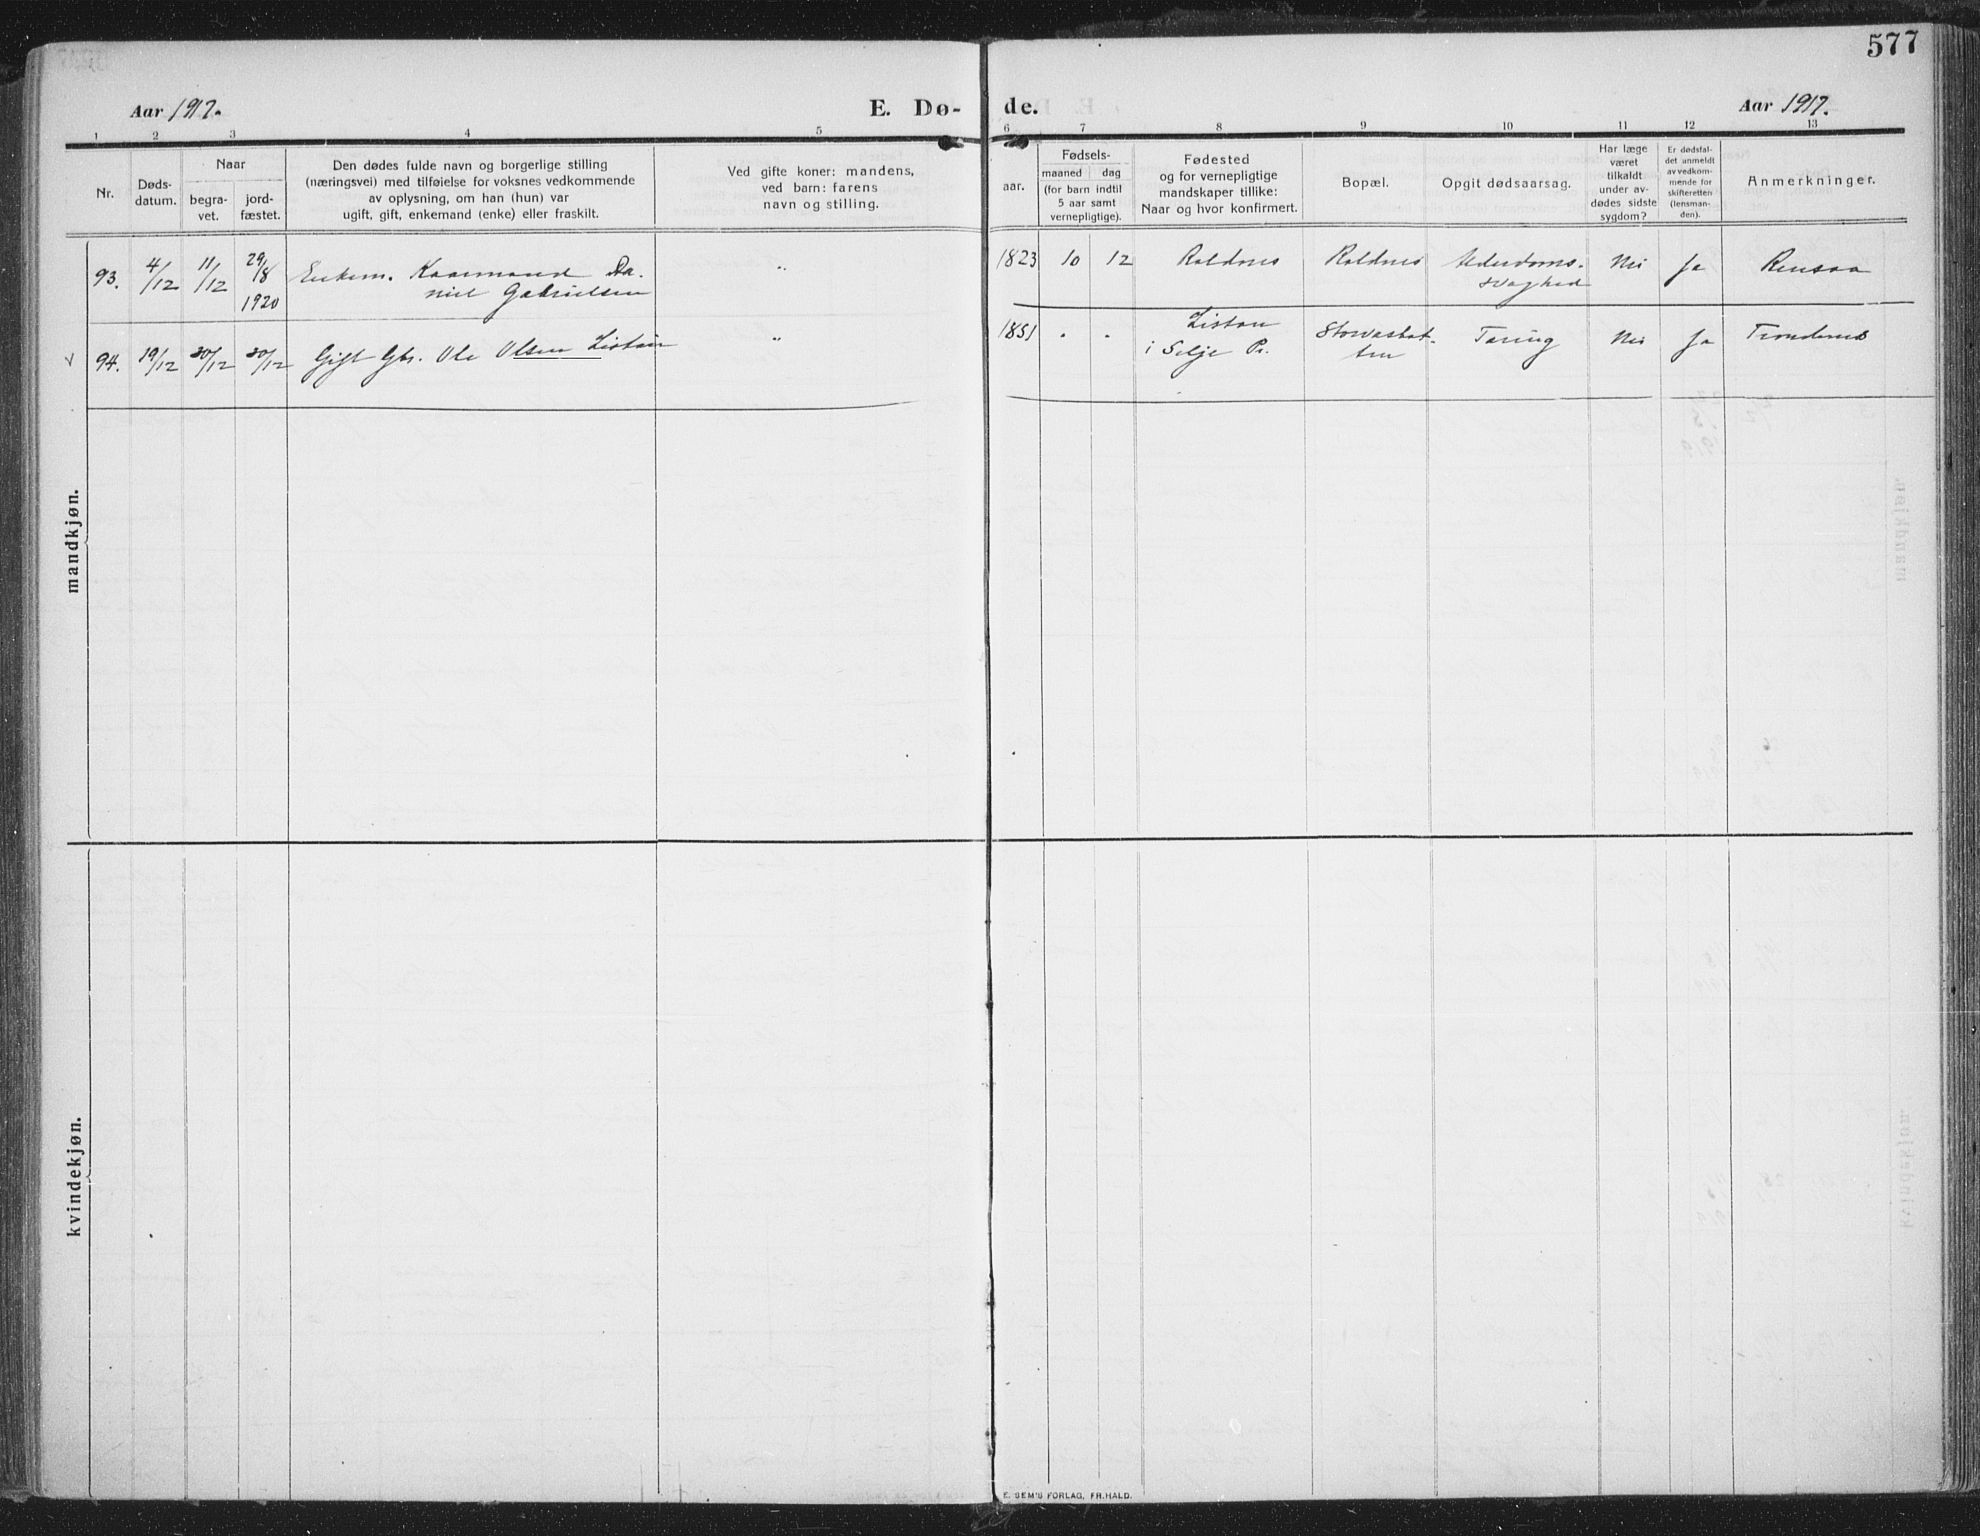 577
Aar 1917.
E. Dø-
de.
Aar 1917.
1 2 3 4 5 6 7 8 9 10 11 12 13
Nr.
Døds-
datum.
Naar
begra-
vet.
jord-
fæstet.
Den dødes fulde navn og borgerlige stilling
(næringsvei) med tilføielse for voksnes vedkommende
av oplysning, om han (hun) var
ugift, gift, enkemand (enke) eller fraskilt.
Ved gifte koner: mandens,
ved barn: farens
navn og stilling.
aar.
Fødsels-
maaned dag
(for barn indtil
5 aar samt
vernepligtige).
Fødested
og for vernepligtige
mandskaper tillike:
Naar og hvor konfirmert.
Bopæl.
Opgit dødsaarsag.
Har læge
været
tilkaldt
under av-
dødes sidste
sygdom?
Er dødsfal-
det anmeldt
av vedkom-
mende for
skifteretten
(lensman-
den).
Anmerkninger.
93. 4/12 11/12 29/8 1920 Enkem. Kaarmand Da-
niel Gabrielsen " 1823 10 12 Roldnes Roldnes Alderdoms-
svaghed Nei Ja Rensaa
94. 19/12 30/12 30/12 Gift Gbr. Ole Olsen Listau " 1851 " " Listau
i Selje Pr. Tæring Nei Ja Trondenes
mandkjøn.
kvindekjøn.
E. SEM'S FORLAG, FR.HALD.